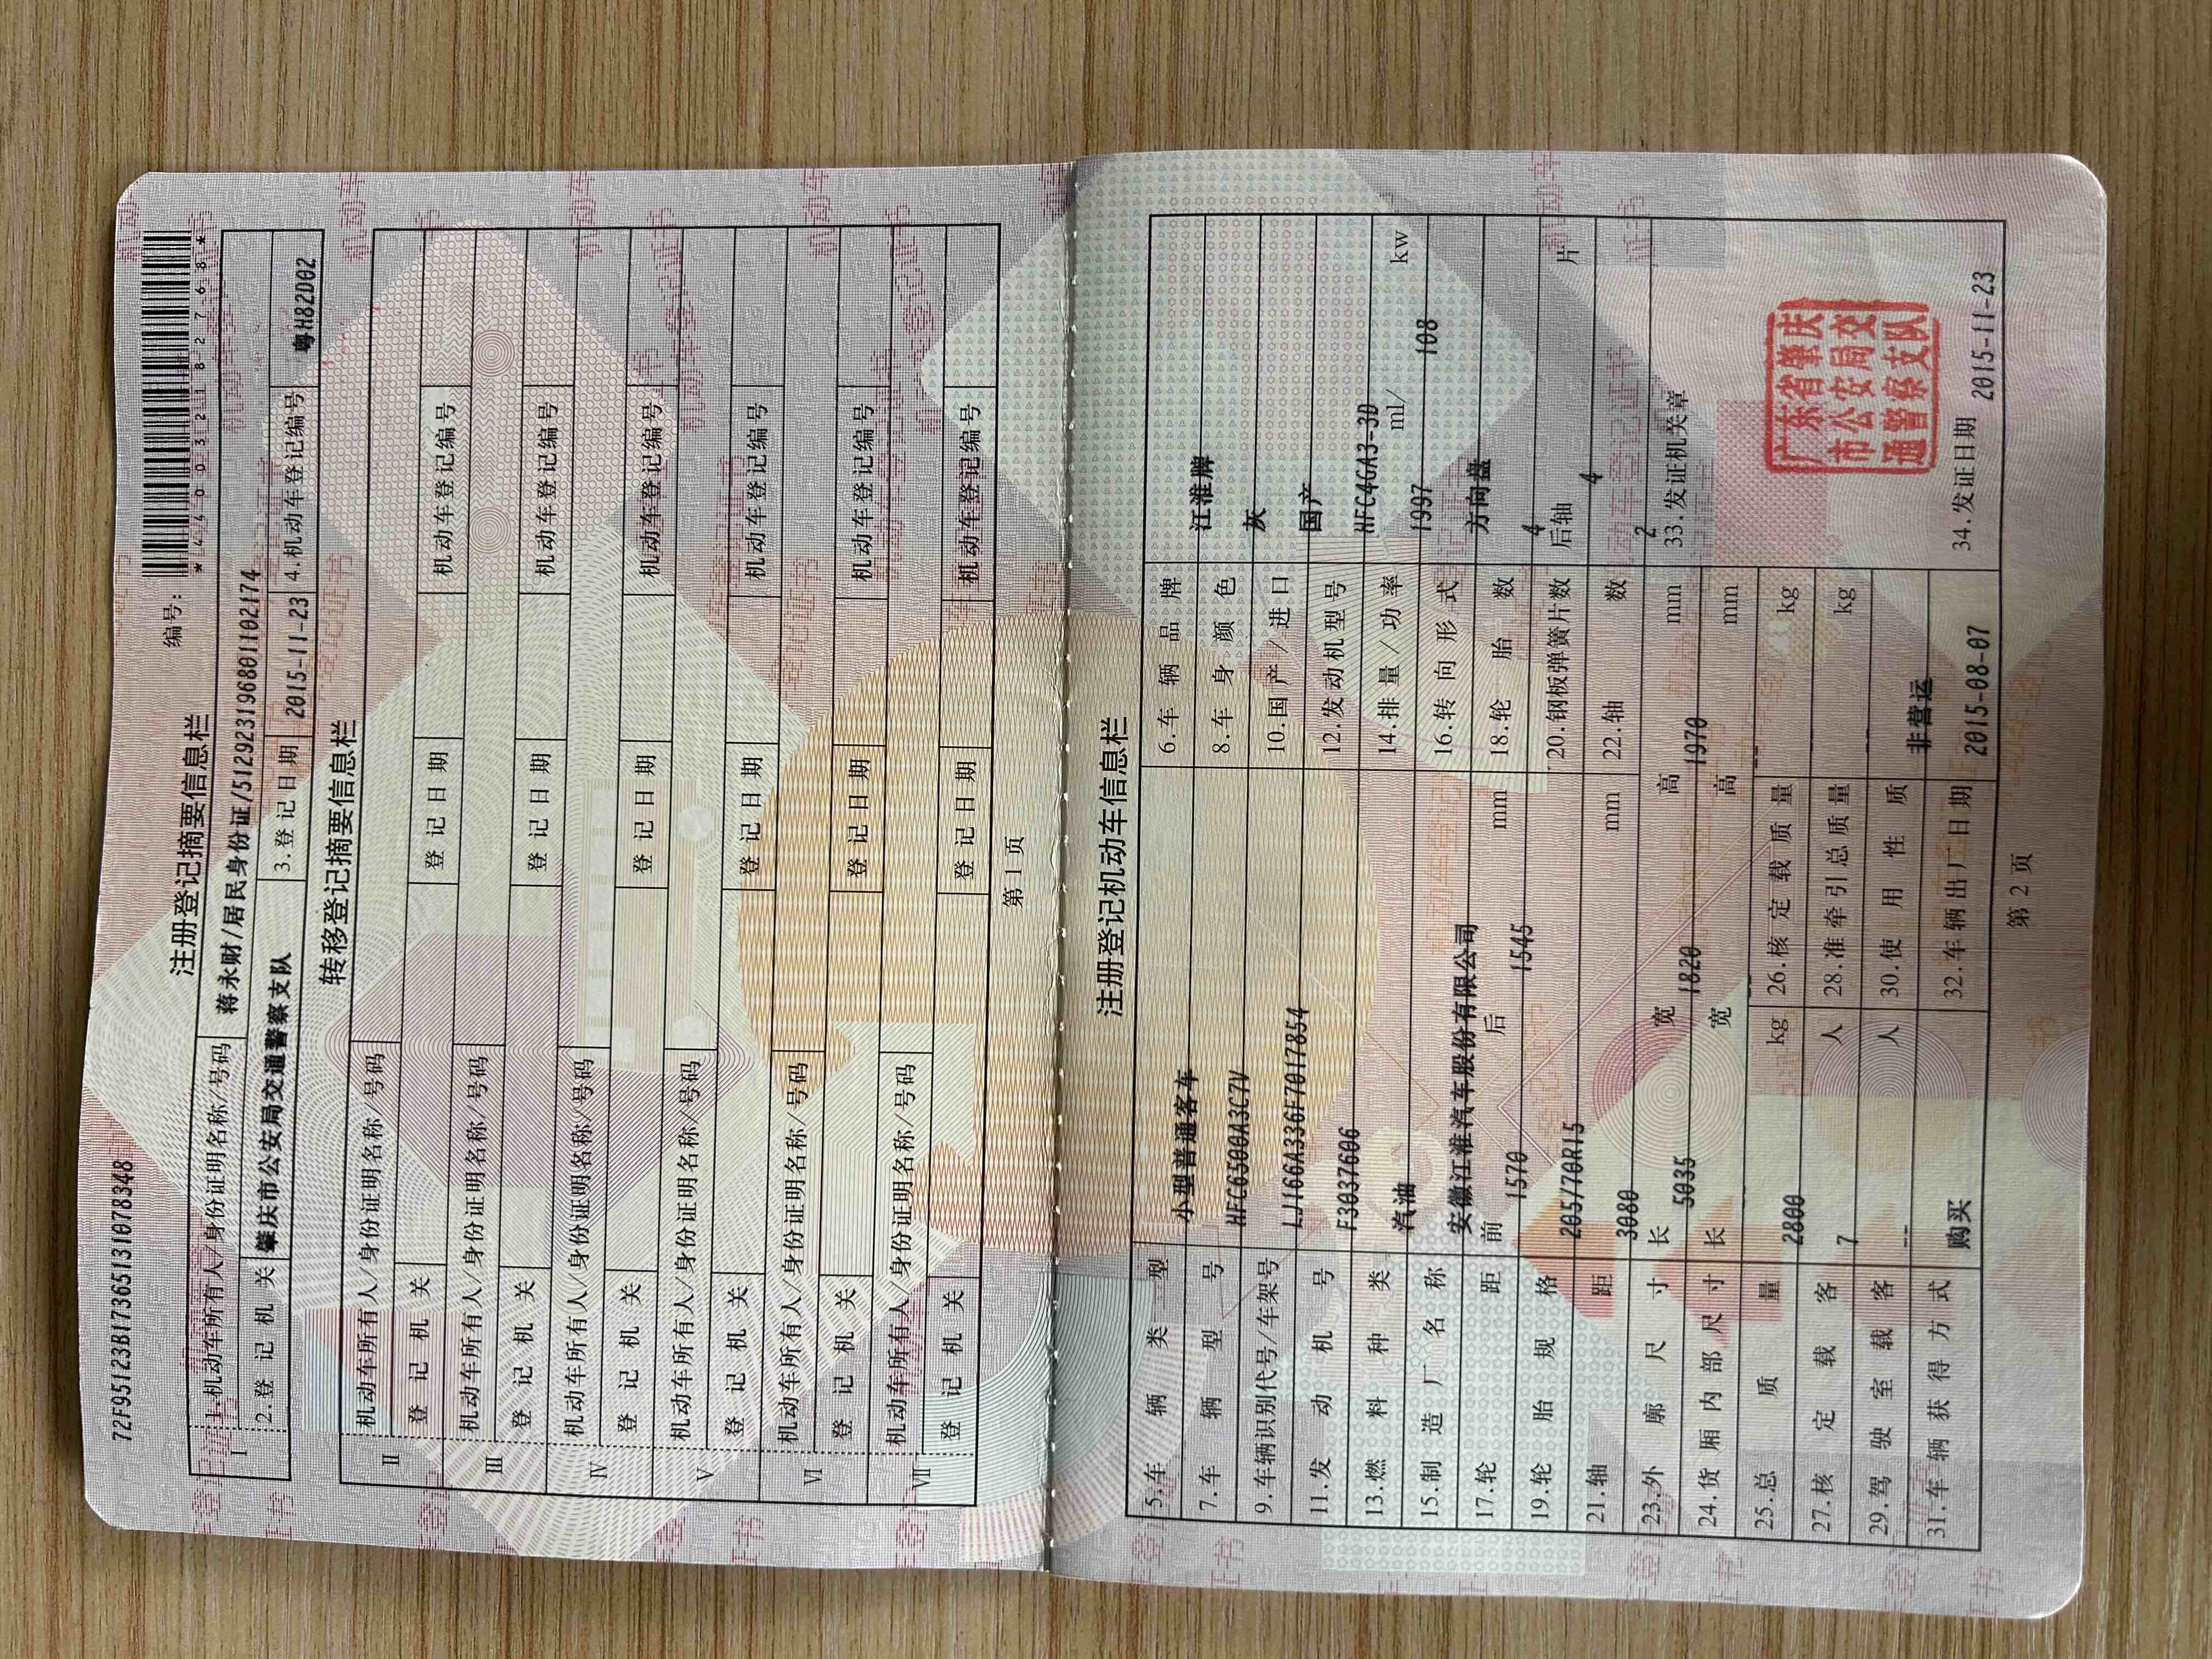 72F95123B1736513131078348
编号:
*440032118827 68*
注册登记摘要信息栏
I 1.机动车所有人/身份证明名称/号码 蒋永财/居民身份证/512923196801102174
2.登记机关 肇庆市公安局交通警察支队 3.登记日期 2015-11-23 4.机动车登记编号 粤H82D02
转移登记摘要信息栏
II 机动车所有人/身份证明名称/号码
登记机关 登记日期 机动车登记编号
III 机动车所有人/身份证明名称/号码
登记机关 登记日期 机动车登记编号
IV 机动车所有人/身份证明名称/号码
登记机关 登记日期 机动车登记编号
V 机动车所有人/身份证明名称/号码
登记机关 登记日期 机动车登记编号
VI 机动车所有人/身份证明名称/号码
登记机关 登记日期 机动车登记编号
VII 机动车所有人/身份证明名称/号码
登记机关 登记日期 机动车登记编号
第1页
注册登记机动车信息栏
5.车辆类型 小型普通客车 6.车辆品牌 江淮牌
7.车辆型号 HFC6500A3C7V 8.车身颜色 灰
9.车辆识别代号/车架号 LJ166A336F7017854 10.国产/进口 国产
11.发动机号 F3037606 12.发动机型号 HFC4GA3-3D
13.燃料种类 汽油 14.排量/功率 1997 ml/ 108 kw
15.制造厂名称 安徽江淮汽车股份有限公司 16.转向形式 方向盘
17.轮距 前 1570 后 1545 mm 18.轮胎数 4
19.轮胎规格 205/70R15 20.钢板弹簧片数 后轴 4 片
21.轴距 3080 mm 22.轴数 2
23.外廓尺寸 长 5035 宽 1820 高 1970 mm 33.发证机关章
24.货厢内部尺寸 长 宽 高 mm
25.总质量 2800 kg 26.核定载质量 kg
27.核定载客 7 人 28.准牵引总质量 kg
29.驾驶室载客 -- 人 30.使用性质 非营运
31.车辆获得方式 购买 32.车辆出厂日期 2015-08-07 34.发证日期 2015-11-23
广东省肇庆
市公安局交
通警察支队
第2页